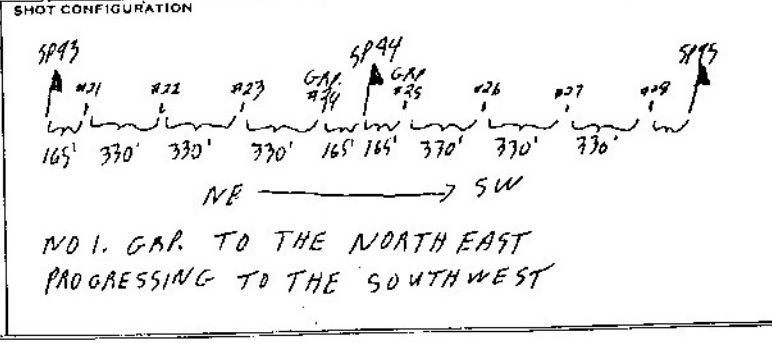 SHOT CONFIGURATION
SP43 SP44 SP45
#21 #22 #23 GRP. #24 GRP #25 #26 #27 #28
165' 330' 330' 330' 165' 165' 330' 330' 330'
NE SW
NO 1. GRP. TO THE NORTH EAST
PROGRESSING TO THE SOUTHWEST